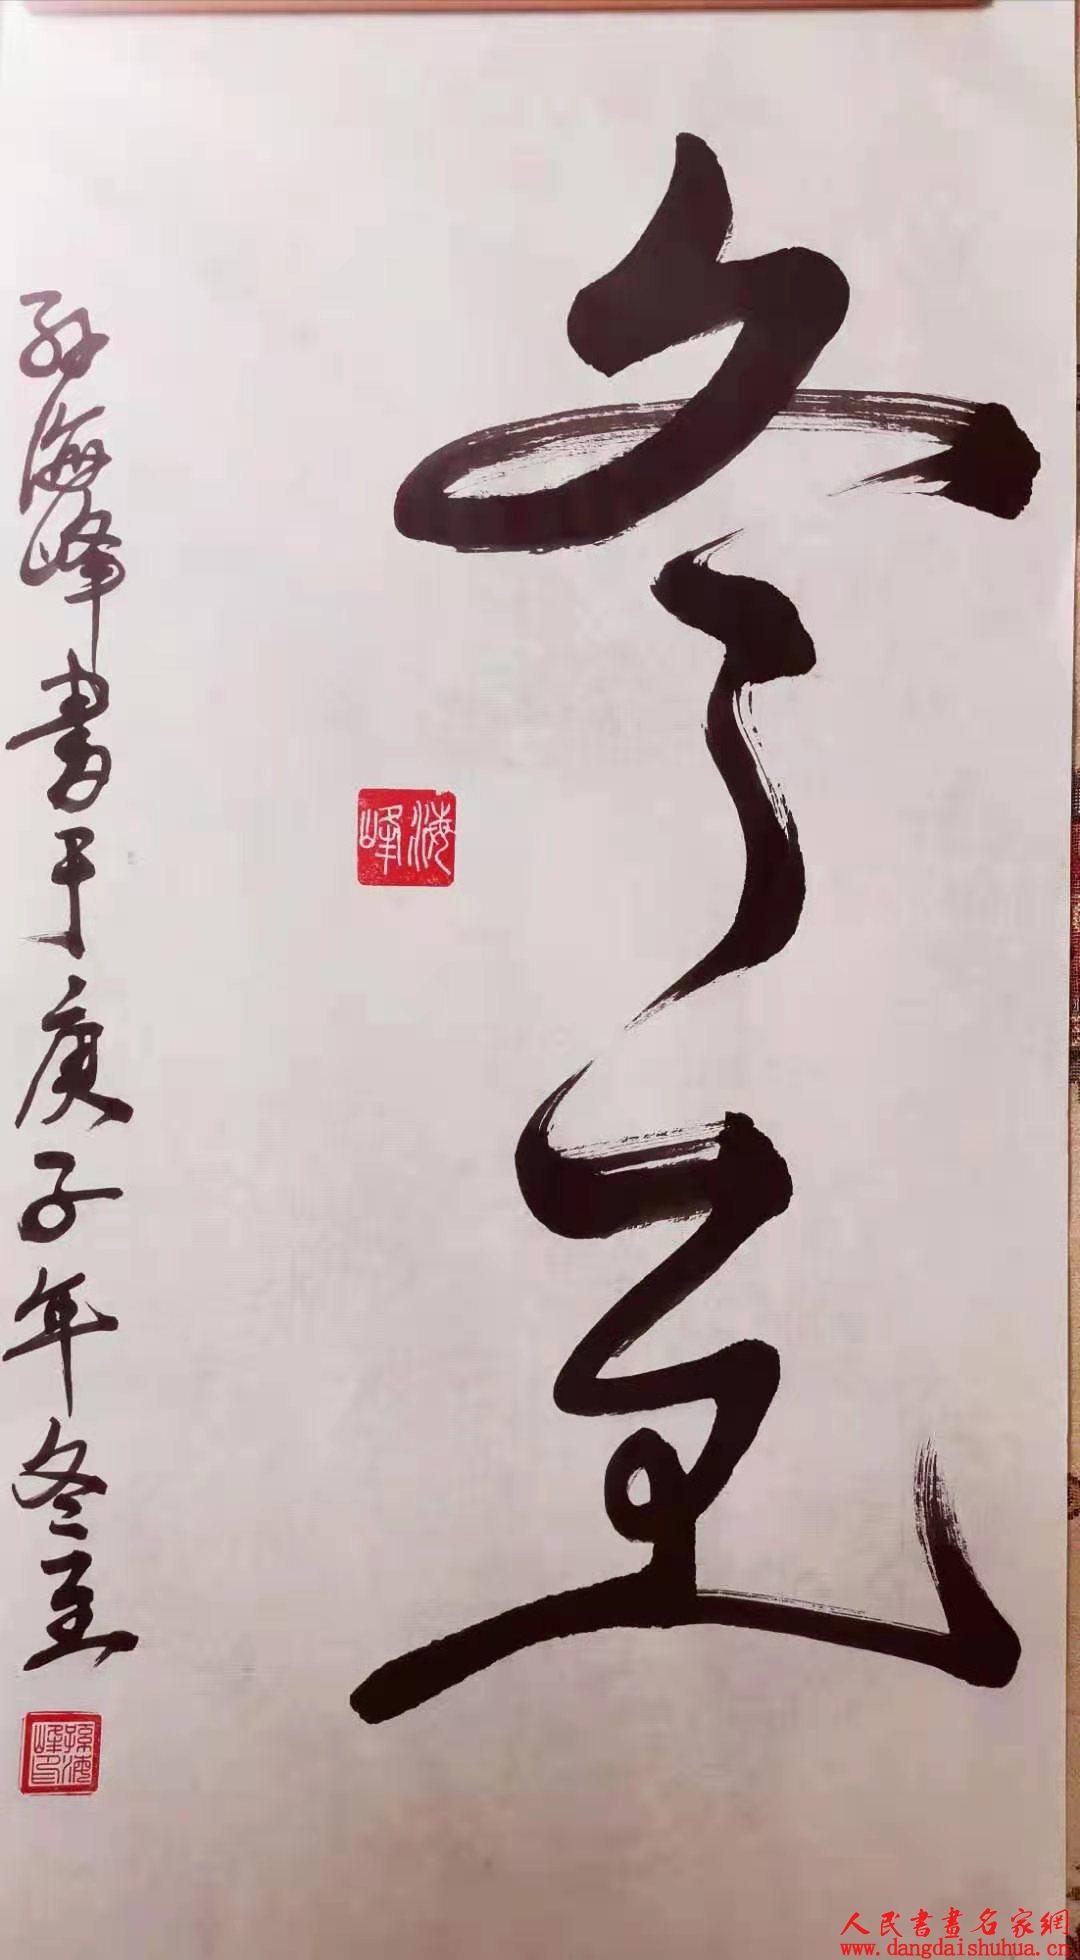 冬至
海峰
孙海峰书于庚子年冬至
孫海峰印
人民書畫名家網
www.dangdaishuhua.cn